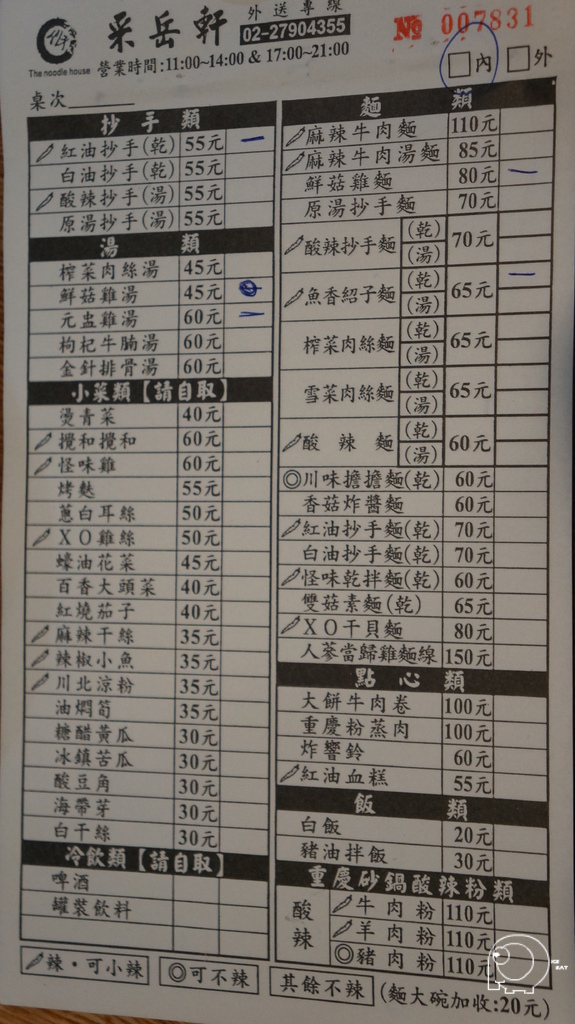 采岳軒
The noodle house
外送專線
02-27904355
營業時間:11:00~14:00 & 17:00~21:00
№ 007831
內 外
桌次
抄手類
紅油抄手(乾) 55元
白油抄手(乾) 55元
酸辣抄手(湯) 55元
原湯抄手(湯) 55元
湯類
榨菜肉絲湯 45元
鮮菇雞湯 45元
元盅雞湯 60元
枸杞牛腩湯 60元
金針排骨湯 60元
小菜類【請自取】
燙青菜 40元
攪和攪和 60元
怪味雞 60元
烤麩 55元
蔥白耳絲 50元
XO雞絲 50元
蠔油花菜 45元
百香大頭菜 40元
紅燒茄子 40元
麻辣干絲 35元
辣椒小魚 35元
川北涼粉 35元
油燜筍 35元
糖醋黃瓜 30元
冰鎮苦瓜 30元
酸豆角 30元
海帶芽 30元
白干絲 30元
冷飲類【請自取】
啤酒
罐裝飲料
麵類
麻辣牛肉麵 110元
麻辣牛肉湯麵 85元
鮮菇雞麵 80元
原湯抄手麵 70元
酸辣抄手麵 (乾) (湯) 70元
魚香紹子麵 (乾) (湯) 65元
榨菜肉絲麵 (乾) (湯) 65元
雪菜肉絲麵 (乾) (湯) 65元
酸辣麵 (乾) (湯) 60元
◎川味擔擔麵(乾) 60元
香菇炸醬麵 60元
紅油抄手麵(乾) 70元
白油抄手麵(乾) 70元
怪味乾拌麵(乾) 60元
雙菇素麵(乾) 65元
XO干貝麵 80元
人蔘當歸雞麵線 150元
點心類
大餅牛肉卷 100元
重慶粉蒸肉 100元
炸響鈴 60元
紅油血糕 55元
飯類
白飯 20元
豬油拌飯 30元
重慶砂鍋酸辣粉類
酸辣
牛肉粉 110元
羊肉粉 110元
◎豬肉粉 110元
辣・可小辣 ◎可不辣 其餘不辣 (麵大碗加收:20元)
ICE
EAT